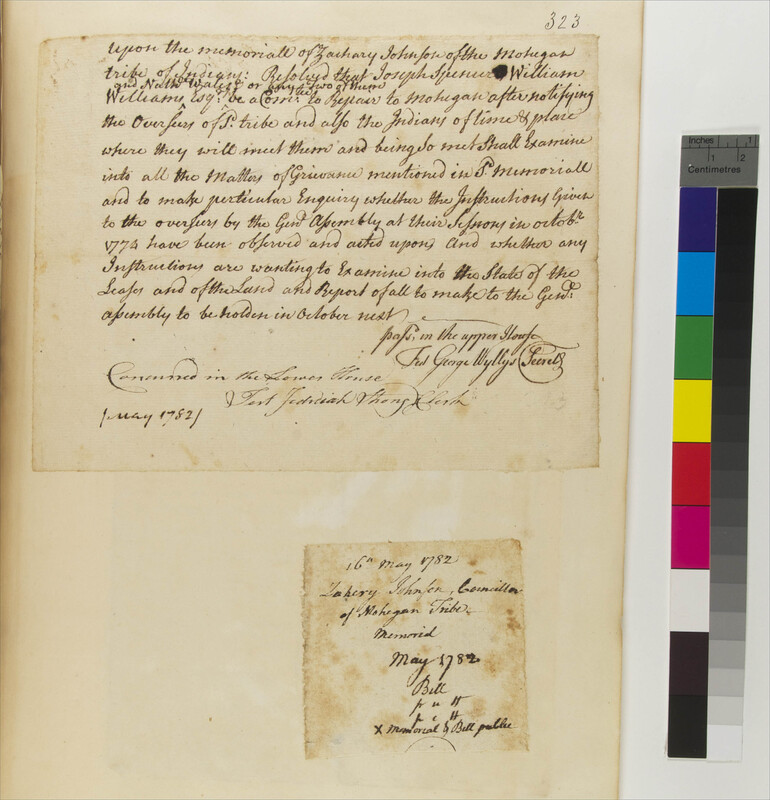 323
Upon the memoriall of Zachary Johnson of the Mohegan
tribe of Indians: Resolved that Joseph Spencer William
and Nathl Wales Jr or any two of them
Williams Esqrs be a Comtee to Repair to Mohegan after notifying
the Overseers of sd. tribe and also the Indians of time & place
where they will meet them and being so met Shall Examine
into all the Matters of Grievance mentioned in sd. Memoriall
and to make perticular Enquiry whether the Instructions Given
to the overseers by the Genll Assembly at their Sessions in octobr.
1774 have been observed and acted upon; And whether any
Instructions are wanting to Examine into the State of the
Leases and of the Land and Report of all to make to the Genll:
assembly to be holden in October next
pass'd in the upper House
Test George Wyllys Secrety
Concurred in the Lower House
Test Jedidiah Strong Clerk
[May 1782]
16th May 1782
Zakery Johnson, Councillor
of Mohegan Tribe
Memorial
May 1782
Bill
pr u H
p l H
X Memorial & Bill public
Inches 1
1 2
Centimetres